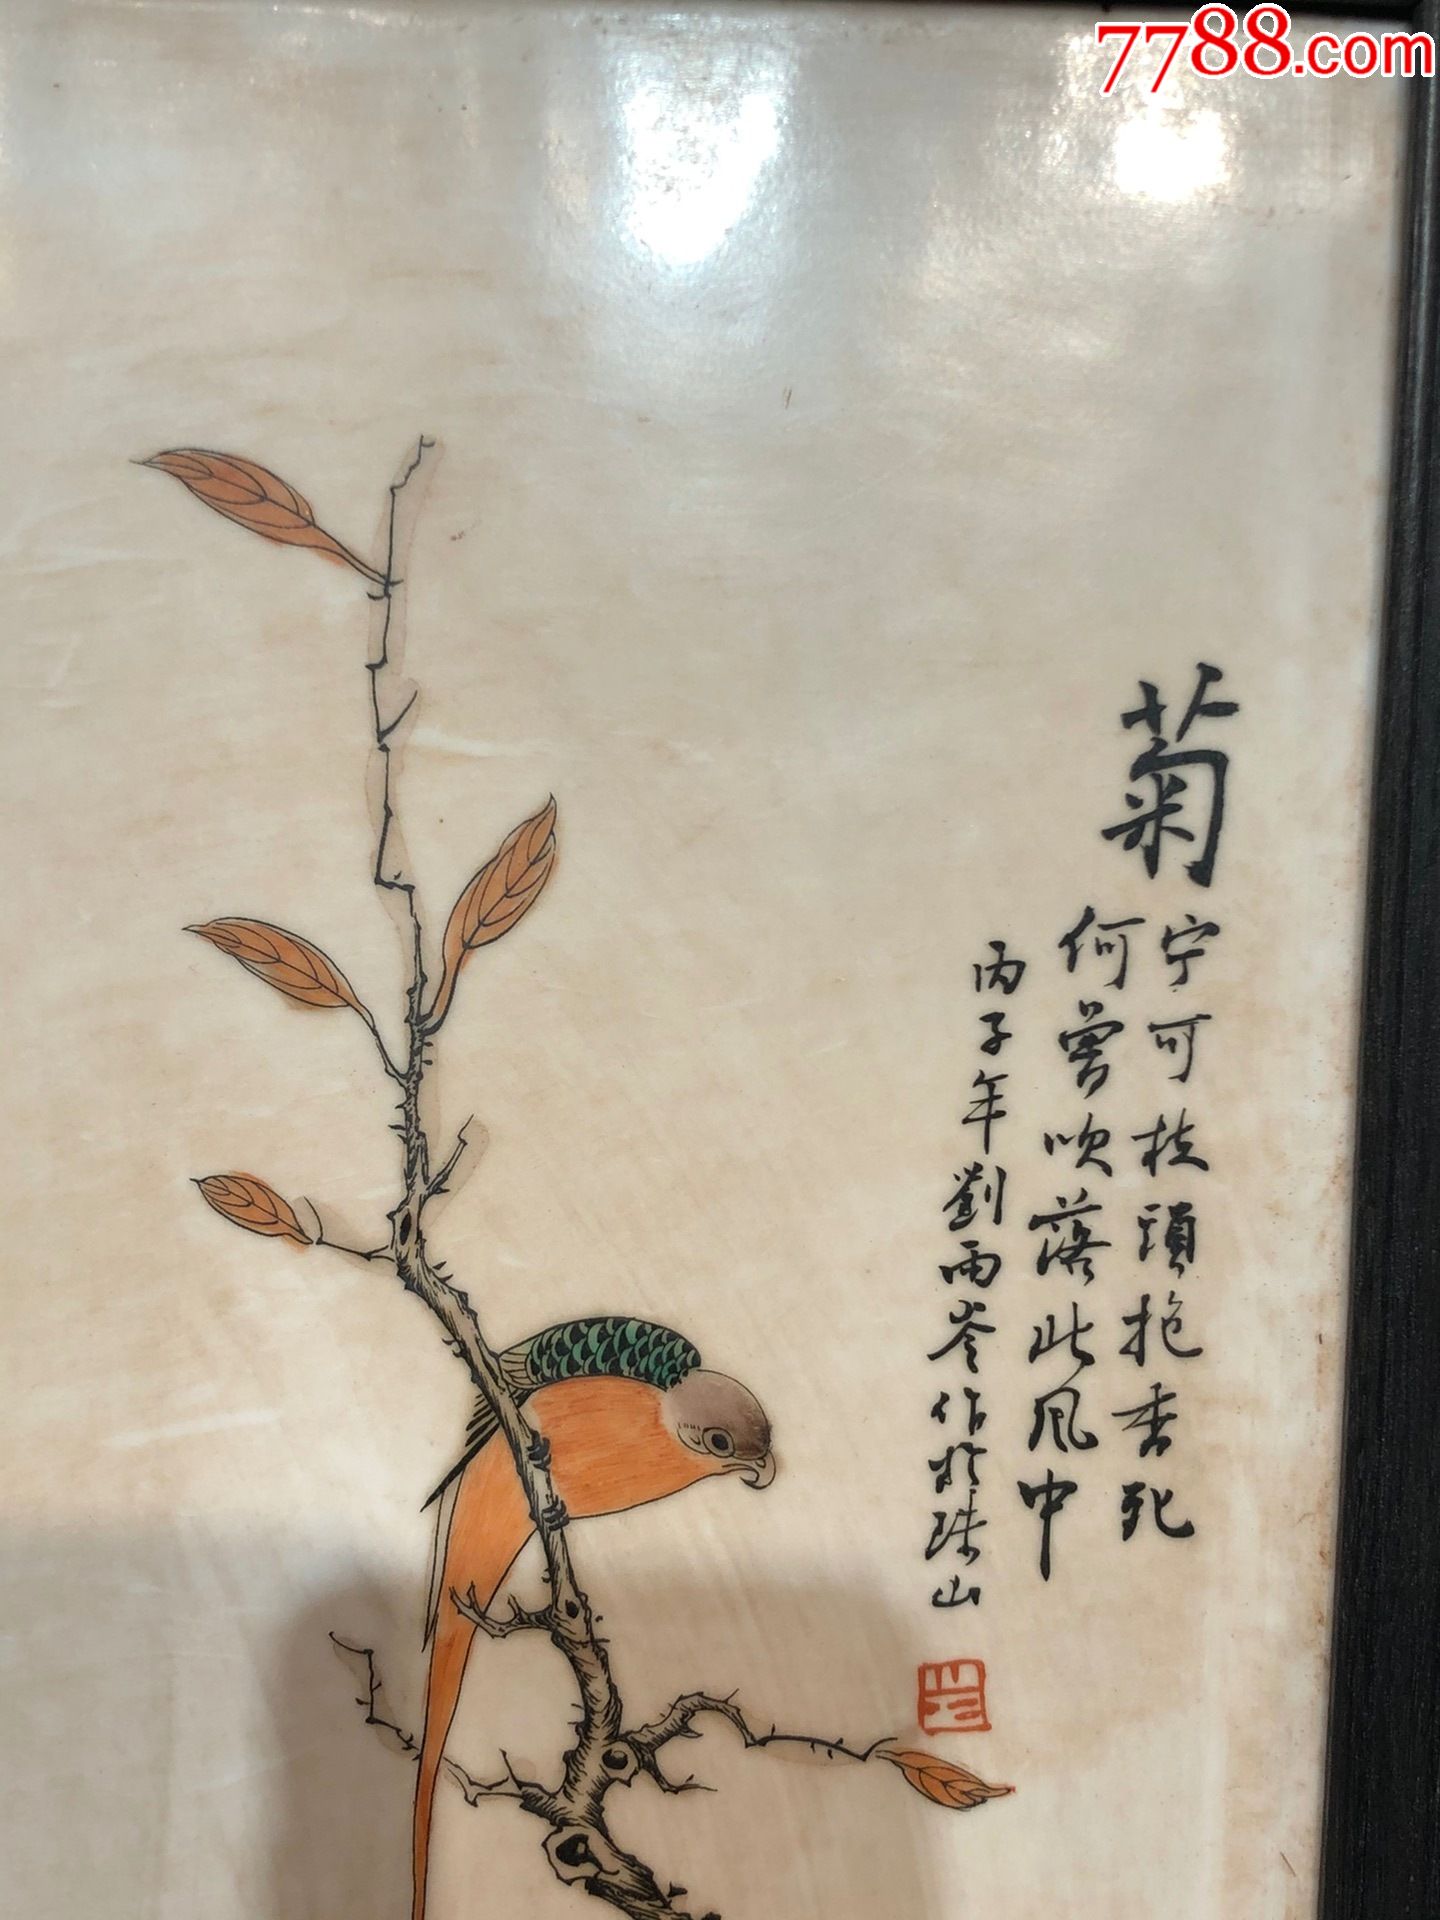 7788.com
菊
宁可枝頭抱香死
何曾吹落此風中
丙子年劉雨岑作於珠山